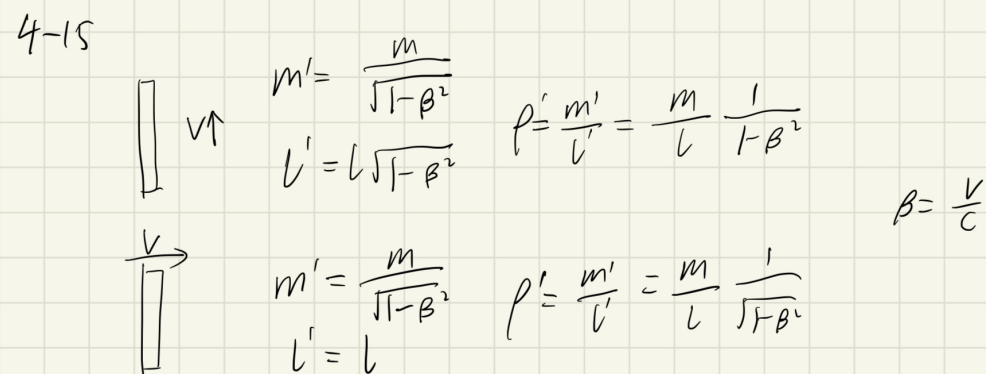 4-15
m' = m / √(1-β²)
V↑
l' = l √(1-β²)
ρ' = m'/l' = m/l 1/(1-β²)
β = V/C
V→
m' = m / √(1-β²)
l' = l
ρ' = m'/l' = m/l 1/√(1-β²)